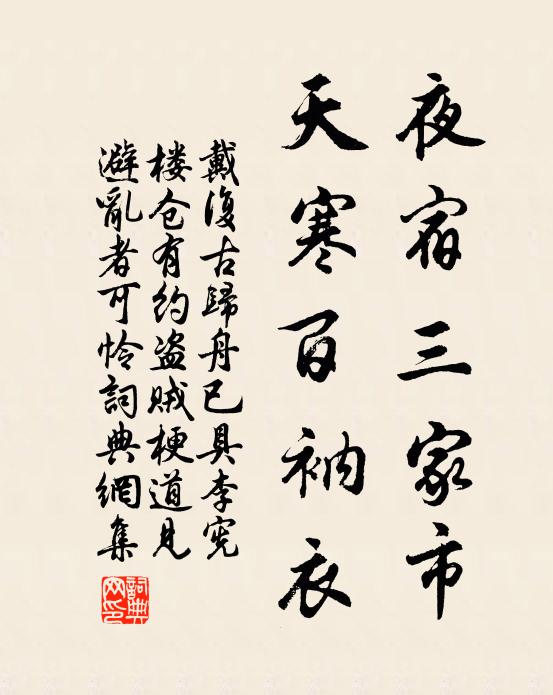 夜宿三家市
天寒百衲衣
戴復古歸舟已具李宪
楼仓有约盗贼梗道见
避亂者可怜詞典網集
詞典網印